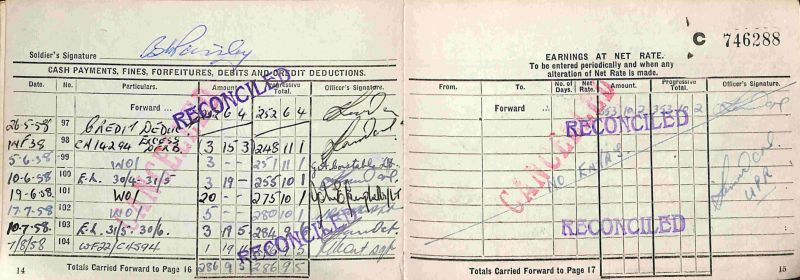 Soldier's Signature
CASH PAYMENTS, FINES, FORFEITURES, DEBITS AND CREDIT DEDUCTIONS.
Date. No. Particulars. Amount. Progressive Total. Officer's Signature.
Forward 252 6 4 252 6 4
26-5-58 97 CREDIT DEDUC
98 CA14294 EXCESS DEBD 3 15 3 248 11 1
5-6-58 99 W01 3 - - 251 11 1
10-6-58 100 E.L. 30/4-31/5 3 19 - 255 10 1
19-6-58 101 W01 20 - - 275 10 1
17.7.58 102 W01 5 - - 280 10 1
10.7.58 103 E.L. 31/5-30/6 3 19 5 284 9 6
7/8/58 104 1 19 11
14 Totals Carried Forward to Page 16 286 9 5 286 9 5
RECONCILED
RECONCILED
CANCELLED
C 746288
EARNINGS AT NET RATE.
To be entered periodically and when any
alteration of Net Rate is made.
From. To. No. of Days. Net Rate. Amount. Progressive Total. Officer's Signature.
Forward 353 10 2 353 10 2
RECONCILED
CANCELLED
NO ENTRIES
UPR
RECONCILED
Totals Carried Forward to Page 17 15